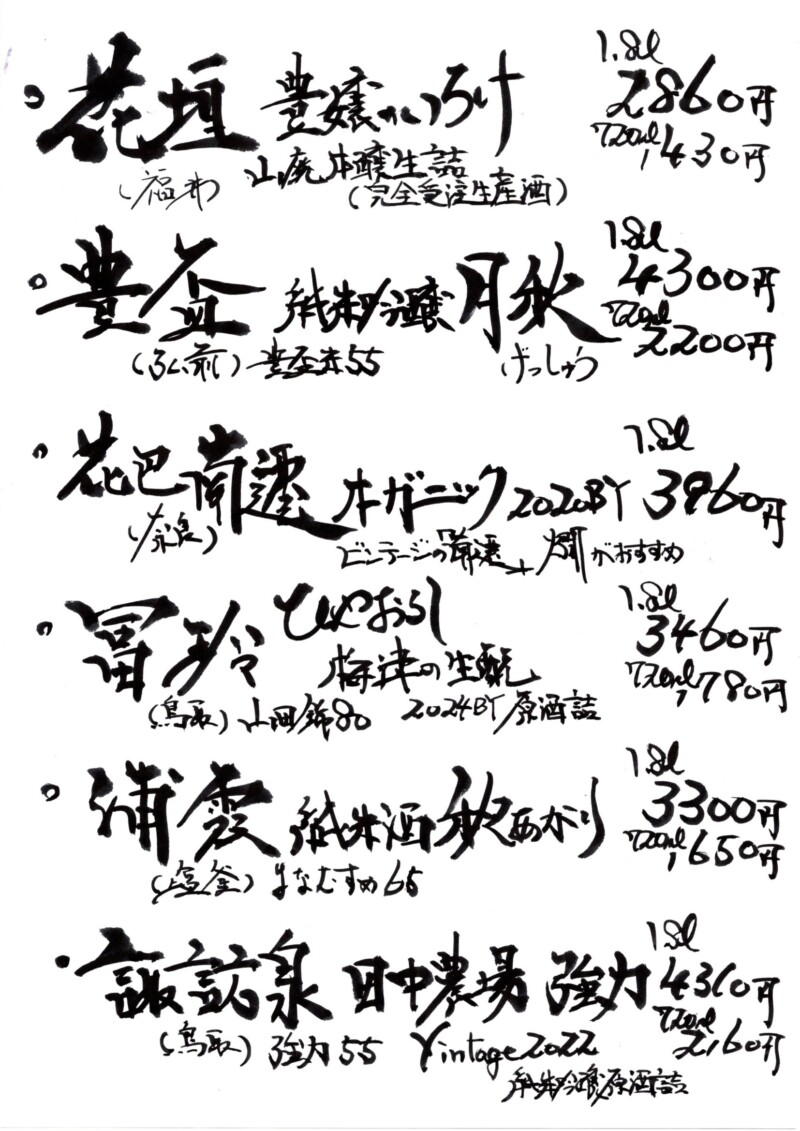 花垣 豊穣かいろは 1.8l 2860円
720ml 1,430円
山廃本醸生詰
(福井) (完全受注生産酒)
豊盃 純米吟醸 月秋 1.8l 4300円
720ml 2200円
(弘前) 豊盃米55 げっしゅう
花巴 南遷 オーガニック 2020BY 1.8l 3960円
(奈良) ビンテージの南遷 燗がおすすめ
冨玲 ひやおろし 1.8l 3460円
梅津の生酛 720ml 1,780円
(鳥取) 山田錦80 2024BY 原酒詰
浦霞 純米酒 秋あがり 1.8l 3300円
720ml 1,650円
(塩釜) まなむすめ65
諏訪泉 田中農場 強力 1.8l 4310円
720ml 2,160円
(鳥取) 強力55 Vintage2022
純米吟醸原酒詰